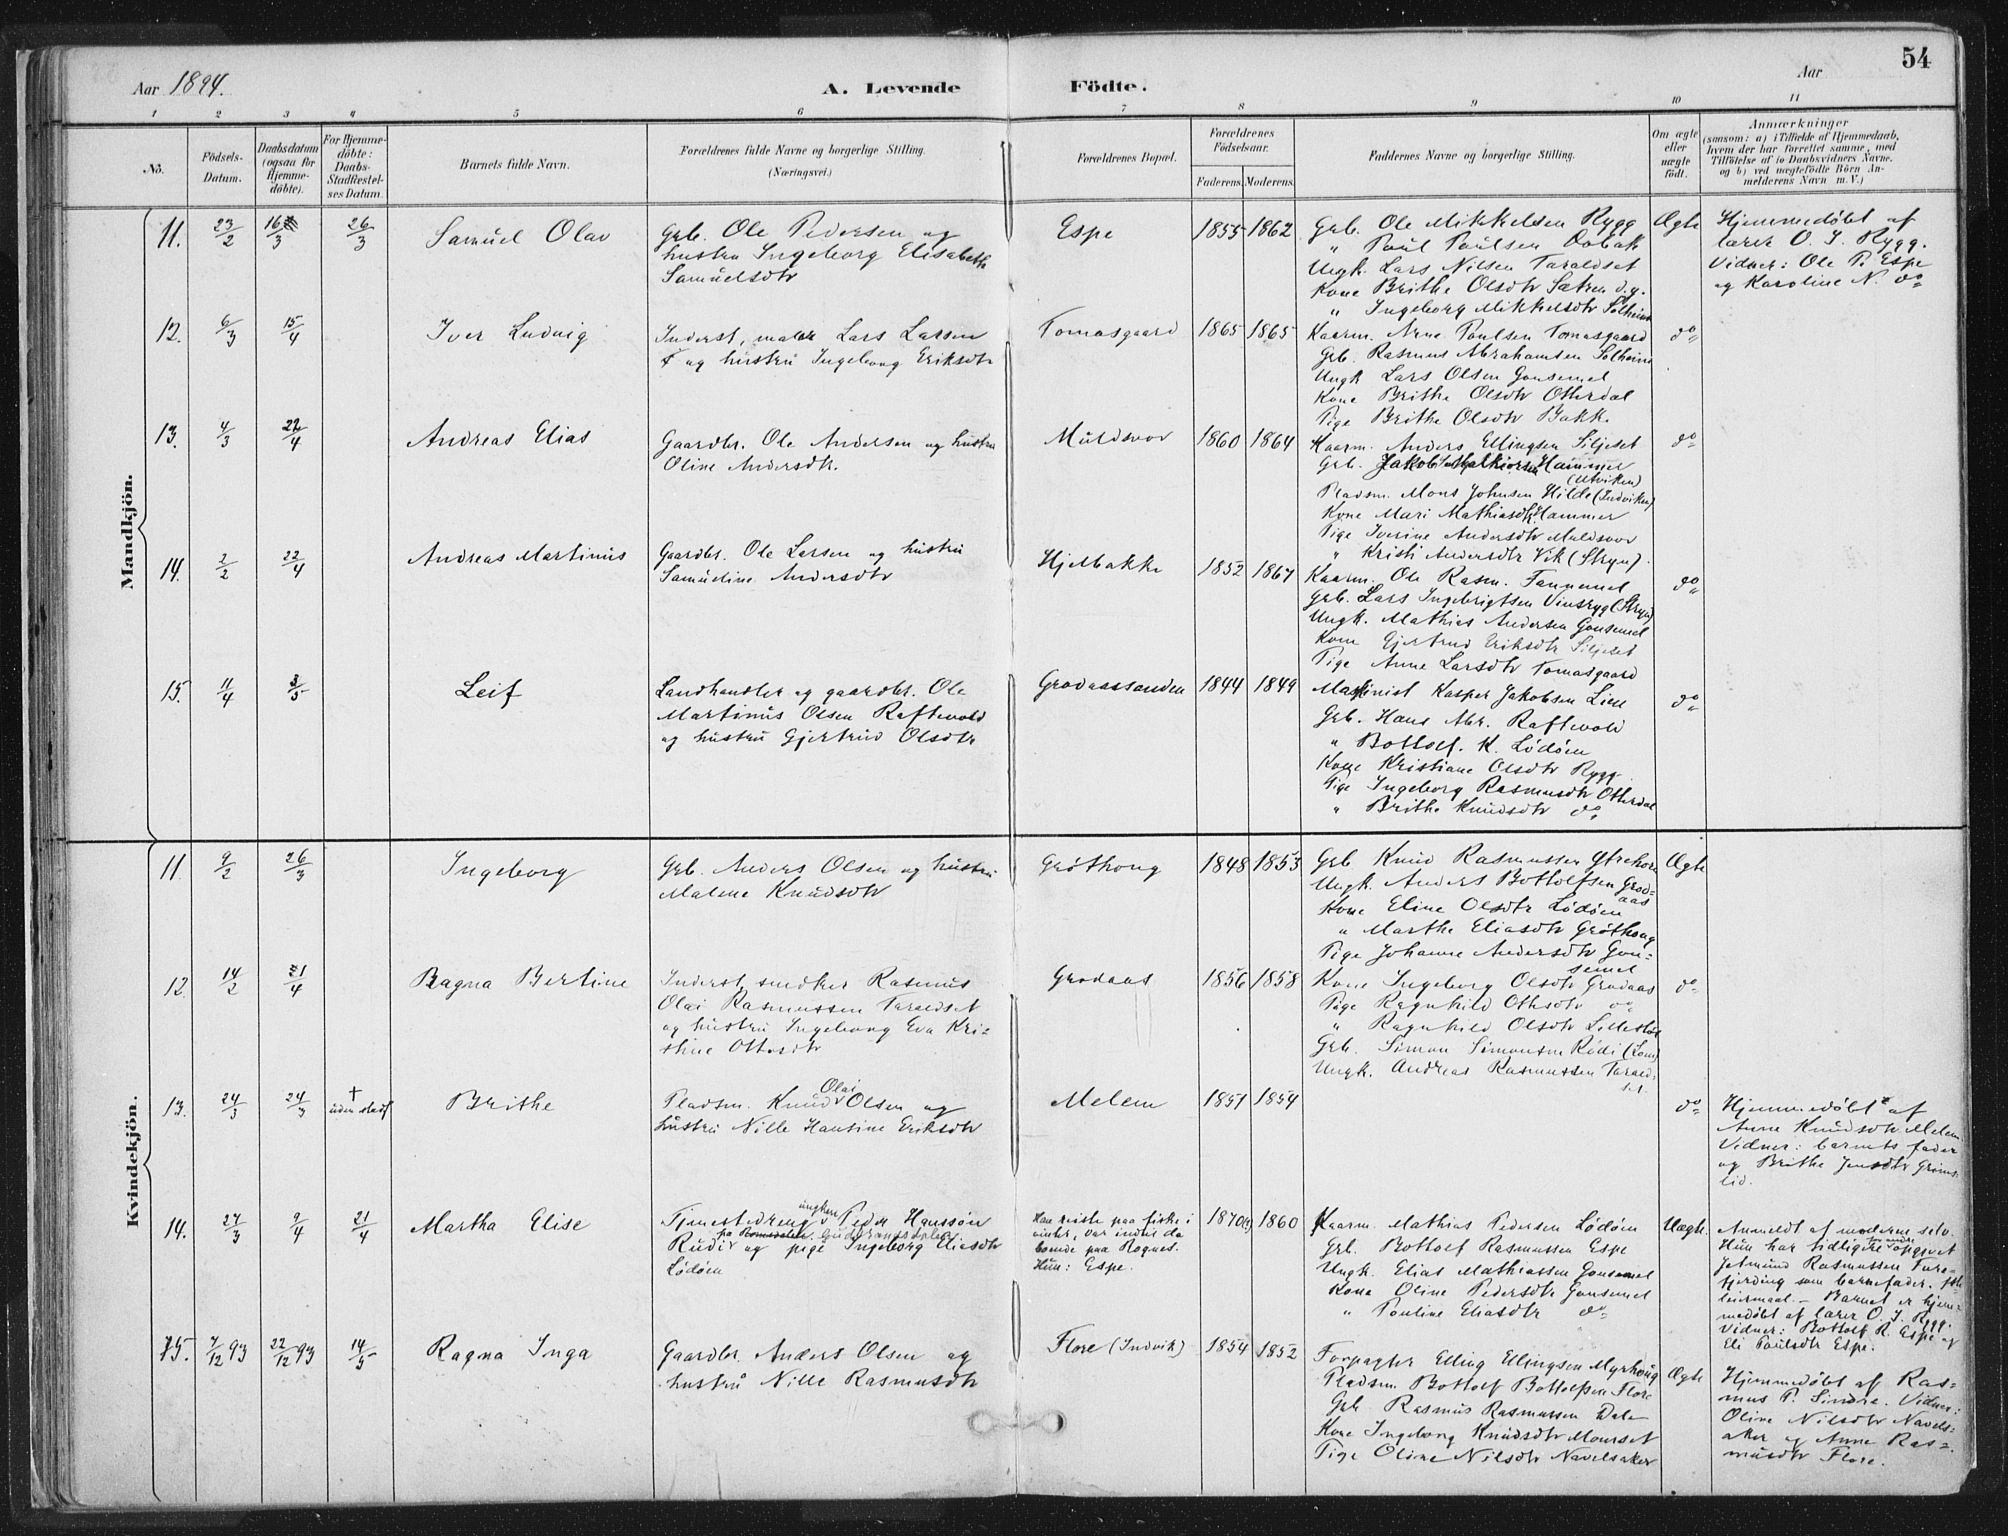 54
Aar 1894.
A. Levende
Födte.
Aar
1 2 3 4 5 6 7 8 9 10 11
No.
Födsels-Datum.
Daabsdatum (ogsaa for Hjemme-döbte).
For Hjemme-döbte: Daabs-Stadfæstel-ses Datum.
Barnets fulde Navn.
Forældrenes fulde Navne og borgerlige Stilling. (Næringsvei.)
Forældrenes Bopæl.
Forældrenes Födselsaar.
Faderens. Moderens.
Faddernes Navne og borgerlige Stilling.
Om ægte eller uægte födt.
Anmærkninger
(saasom: a) i Tilfælde af Hjemmedaab,
hvem der har forrettet samme, med
Tilföielse af to Daabsvidners Navne,
og b) ved uægtefödte Börn An-
melderens Navn m. V.)
Mandkjön.
11. 23/2 16/3 26/3 Samuel Olav
Grb. Ole Pedersen og
hustru Ingeborg Elisabeth
Samuelsdtr
Espe 1855 1862
Grb. Ole Mikkelsen Rygg
" Poul Poulsen Osbak
Ungk. Lars Nilsen Taraldset
Kone Brithe Olsdtr Sætren d.y.
" Ingeborg Mikkelsdtr Solheim
Ægte
Hjemmedøbt af
lærer O. J. Rygg.
Vidner: Ole P. Espe
og Karoline N. do
12. 6/3 15/4 Iver Ludvig
Inderst, maler Lars Larsen
og hustru Ingeborg Eriksdtr
Tomasgaard 1865 1865
Kaarm. Arne Poulsen Tomasgaard
Grb. Rasmus Abrahamsen Solheim
Ungk. Lars Olsen Gausemel
Kone Brithe Olsdtr Otterdal
Pige Brithe Olsdtr Bakke
do
13. 4/3 22/4 Andreas Elias
Gaardbr. Ole Andersen og hustru
Oline Andersdtr.
Muldsvor 1860 1864
Kaarm. Anders Ellingsen Siljeset
Grb. Jakob Melkiorsen Hammer
(Utviken)
Pladsm. Mons Johnsen Hilde (Indviken)
Kone Mari Mathiasdtr Hammer
Pige Iverine Andersdtr Muldsvor
" Kristi Andersdtr Vik (Stryn).
do
14. 2/2 22/4 Andreas Martinus
Gaardbr. Ole Larsen og hustru
Samueline Andersdtr
Hjelbakke 1852 1867
Kaarm. Ole Rasm. Tannemel
Grb. Lars Ingebrigtsen Vinsryg (Stryn)
Ungk. Mathias Andersen Gausemel
Kone Gjertrud Eriksdtr Siljeset
Pige Anne Larsdtr Tomasgaard
do
15. 11/4 3/5 Leif
Landhandler og gaardbr. Ole
Martinus Olsen Raftevold
og hustru Gjertrud Olsdtr
Grodaassanden 1844 1849
Maskinist Kasper Jakobsen Lien
Grb. Hans Abr. Raftevold
" Bottolf. K. Lödöen
Kone Kristiane Olsdtr Rygg
Pige Ingeborg Rasmusdtr Otterdal
" Brithe Knudsdtr do
do
Kvindekjön.
11. 9/2 26/3 Ingeborg
Grb. Anders Olsen og hustru
Malene Knudsdtr
Gröthoug 1848 1853
Grb Knud Rasmussen Ytrehorn
Ungk. Anders Bottolfsen Grod-
aas
Kone Eline Olsdtr Lödöen
" Marthe Eliasdtr Gröthoug
Pige Johanne Andersdtr Gau-
semel
Ægte
12. 14/2 21/4 Ragna Bertine
Inderst, snedker Rasmus
Olai Rasmussen Taraldset
og hustru Ingeborg Eva Kri-
stine Ottosdtr
Grodaas 1856 1858
Kone Ingeborg Olsdtr Grodaas
Pige Ragnhild Othsdtr do
" Ragnhild Olsdtr
Grb. Simon Simonsen Rödi (Lom)
Ungk. Andreas Rasmussen Tarald-
set
do
13. 24/3 24/3 † uden stadf Brithe
Pladsm. Knud Olai Olsen og
hustru Nille Hansine Eriksdtr
Melem 1851 1854
do
Hjemmedøbt af
Anne Knudsdtr Melem
Vidner: barnets fader
og Brithe Jensdtr Grims-
lid.
14. 27/3 9/4 21/4 Martha Elise
Tjenestedreng, ungkar Peder Hanssön
Rudi paa Gudbrandsdalen og pige Ingeborg Eliasdtr
Lödöen
Han reiste paa fiske i
vinter, var inden da
boende paa Rognes.
Hun: Espe.
1870 1860
Kaarm. Mathias Pedersen Lödöen
Grb. Bottolf Rasmussen Espe
Ungk. Elias Mathiassen Gausemel
Kone Oline Pedersdtr Gausemel
" Pauline Eliasdtr do
Uægte.
Anmeldt af moderen selv.
Hun har tidligere opgivet
Jetmund Rasmussen Fure-
fjerding som barnefader.
leiermaal. - Barnet er hjem-
medøbt af lærer O. J. Rygg.
Vidner: Bottolf R. Espe og
Eli Poulsdtr Espe.
15. 7/12 93 22/12 93 14/5 Ragna Inga
Gaardbr. Anders Olsen og
hustru Nille Rasmusdtr
Flore (Indvik) 1854 1852
Forpagter Elling Ellingsen Myrhoug
Pladsm Bottolf Bottolfsen Flore
Grb. Rasmus Rasmussen Dale
Kone Ingeborg Knudsdtr Maurset
Pige Oline Nilsdtr Navelsaker
Ægte
Hjemmedøbt af Ras-
mus P. Sindre. Vidner:
Oline Nilsdtr Navels-
aker og Anne Ras-
musdtr Flore.